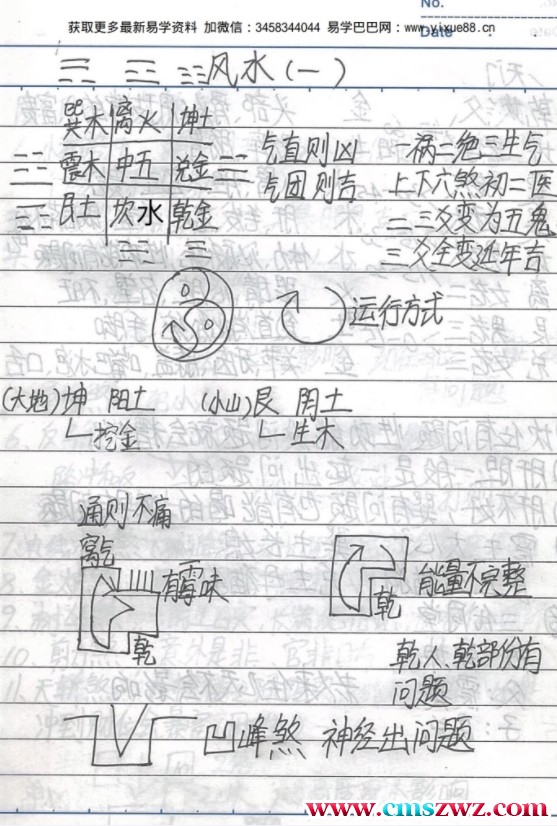 No.
获取更多最新易学资料 加微信：3458344044 易学巴巴网：www.yixue88.cn
Date
☴ ☲ ☷ 风水（一）
巽木 离火 坤土
震木 中五 兑金
艮土 坎水 乾金
气直则凶 一祸二绝三生气
气团则吉 上下六煞初二医
二三爻变为五鬼
三爻全变延年吉
运行方式
（大地）坤 阳土 （小山）艮 阴土
挖金 生木
通则不痛
离气
有霉味
乾
乾 能量不完整
乾人、乾部份有
问题
凹峰煞 神经出问题
www.cmszwz.com